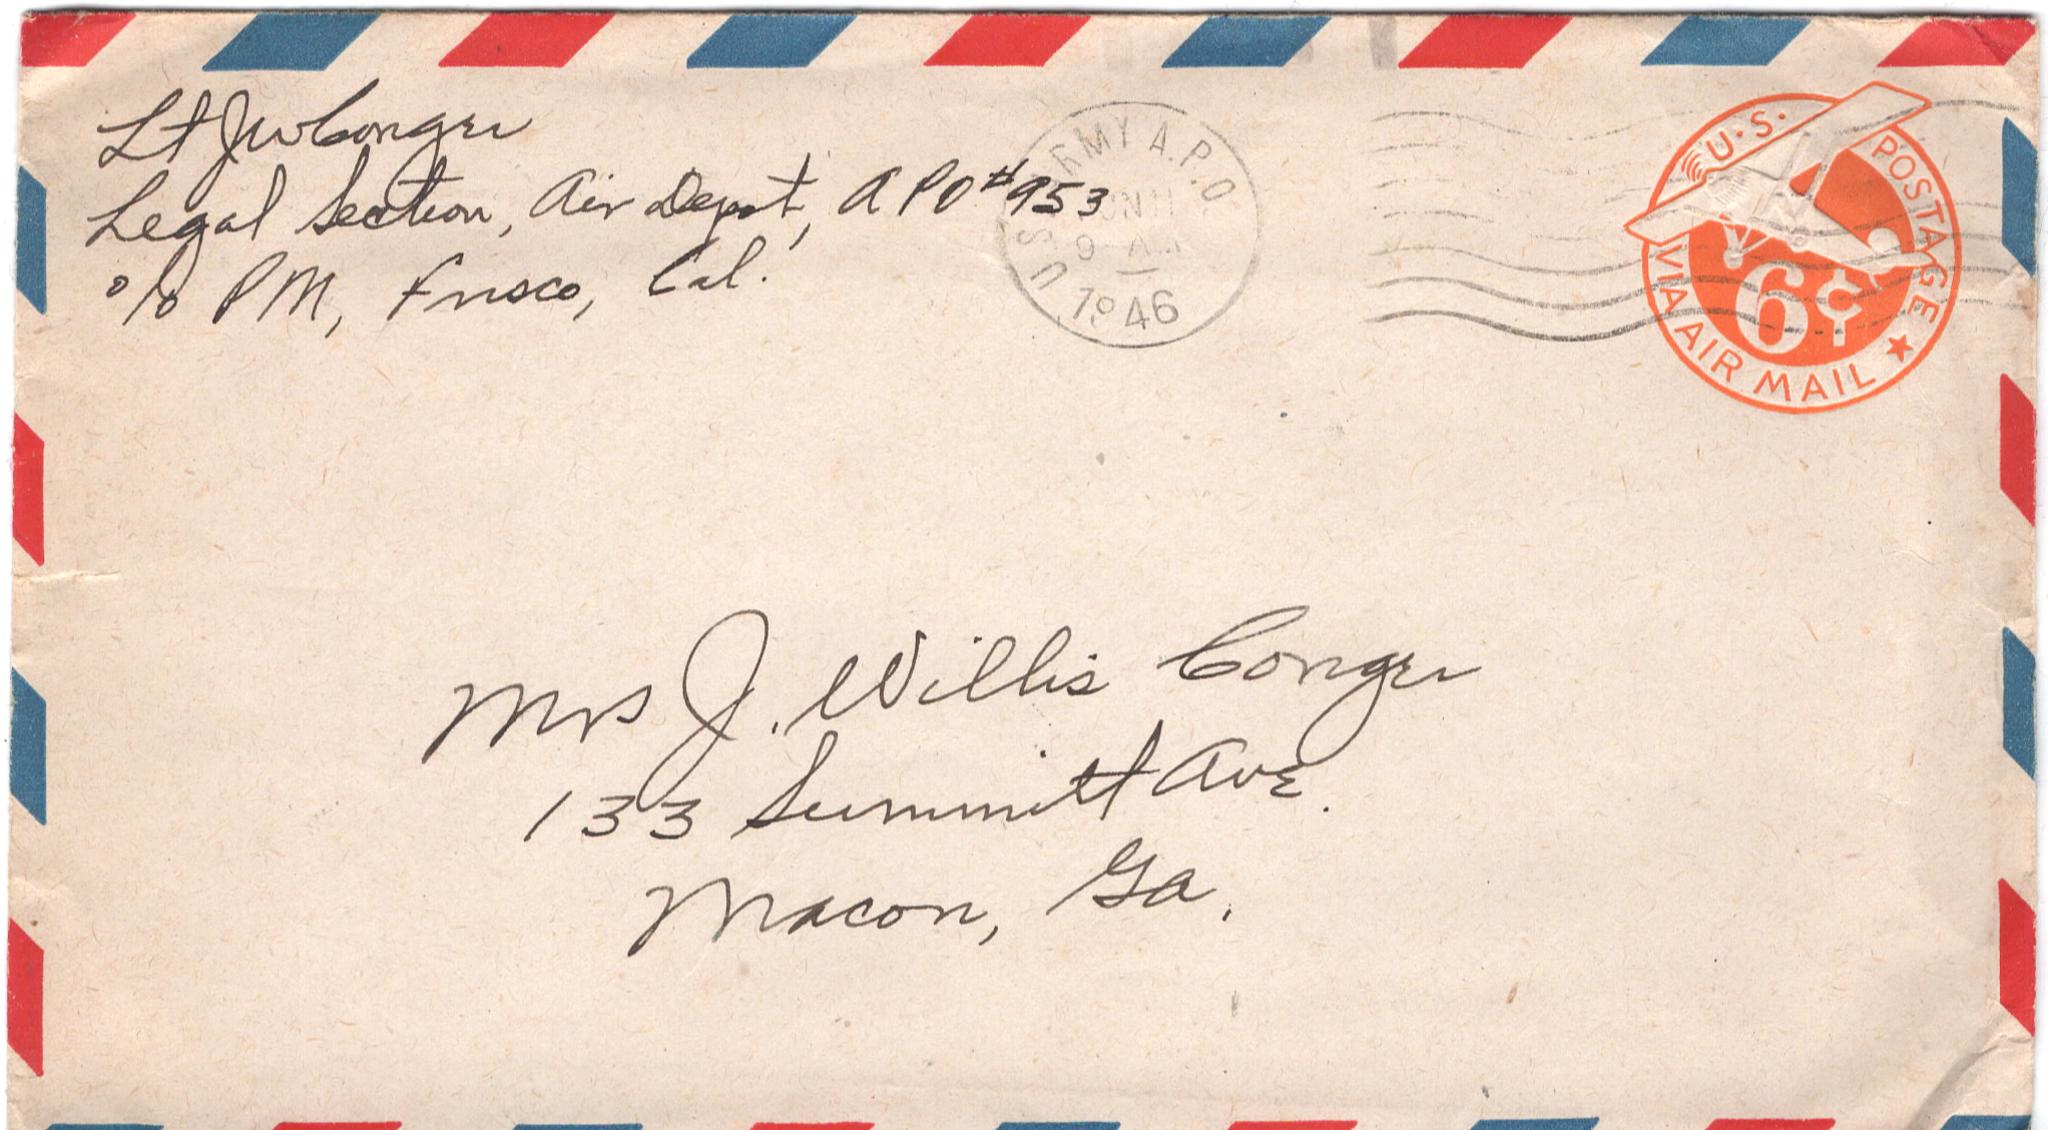 Lt JW Conger
Legal Section, Air Depot, APO #953
c/o PM, Frisco, Cal.
U.S. ARMY A.P.O
JUN 11
9 AM
1946
U.S. POSTAGE
6¢
VIA AIR MAIL
Mrs J. Willis Conger
133 Summitt Ave.
Macon, Ga.